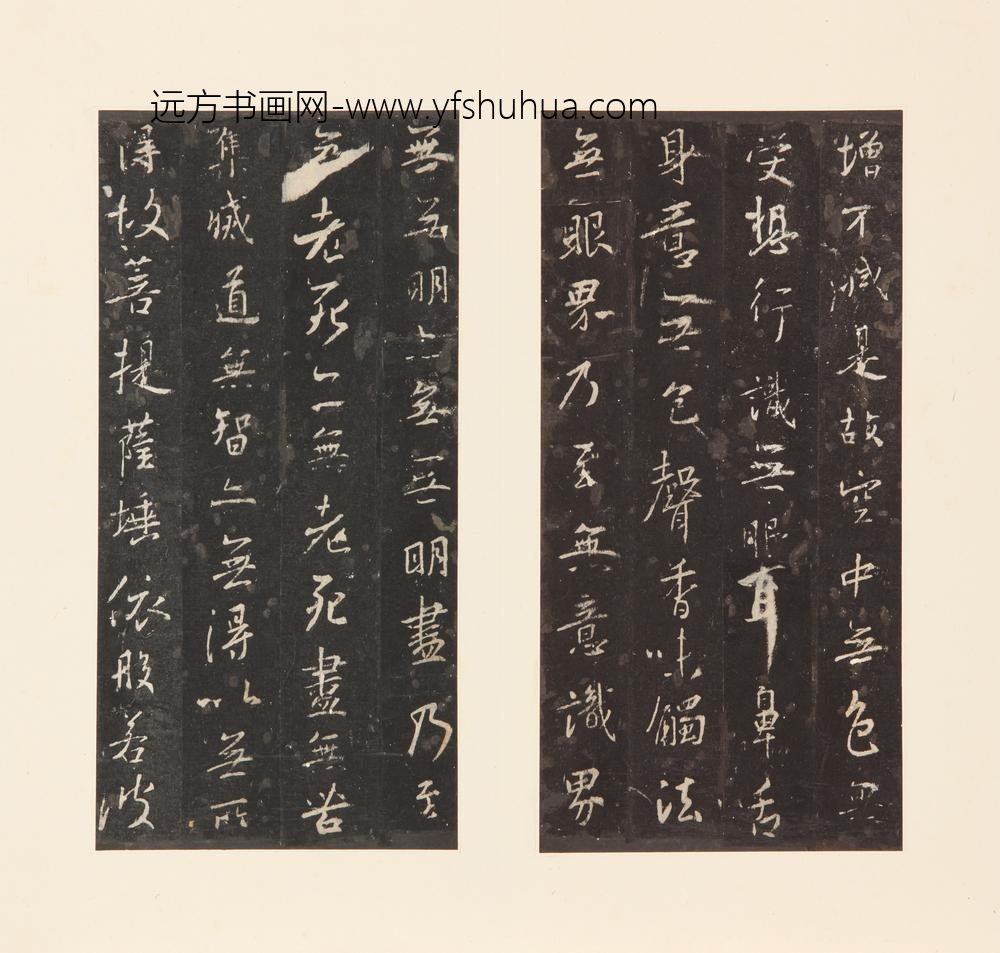 远方书画网-www.yfshuhua.com
增不减是故空中無色無
受想行識無眼耳鼻舌
身意無色聲香味觸法
無眼界乃至無意識界
無無明亦無無明盡乃至
無老死亦無老死盡無苦
集滅道無智亦無得以無所
得故菩提薩埵依般若波